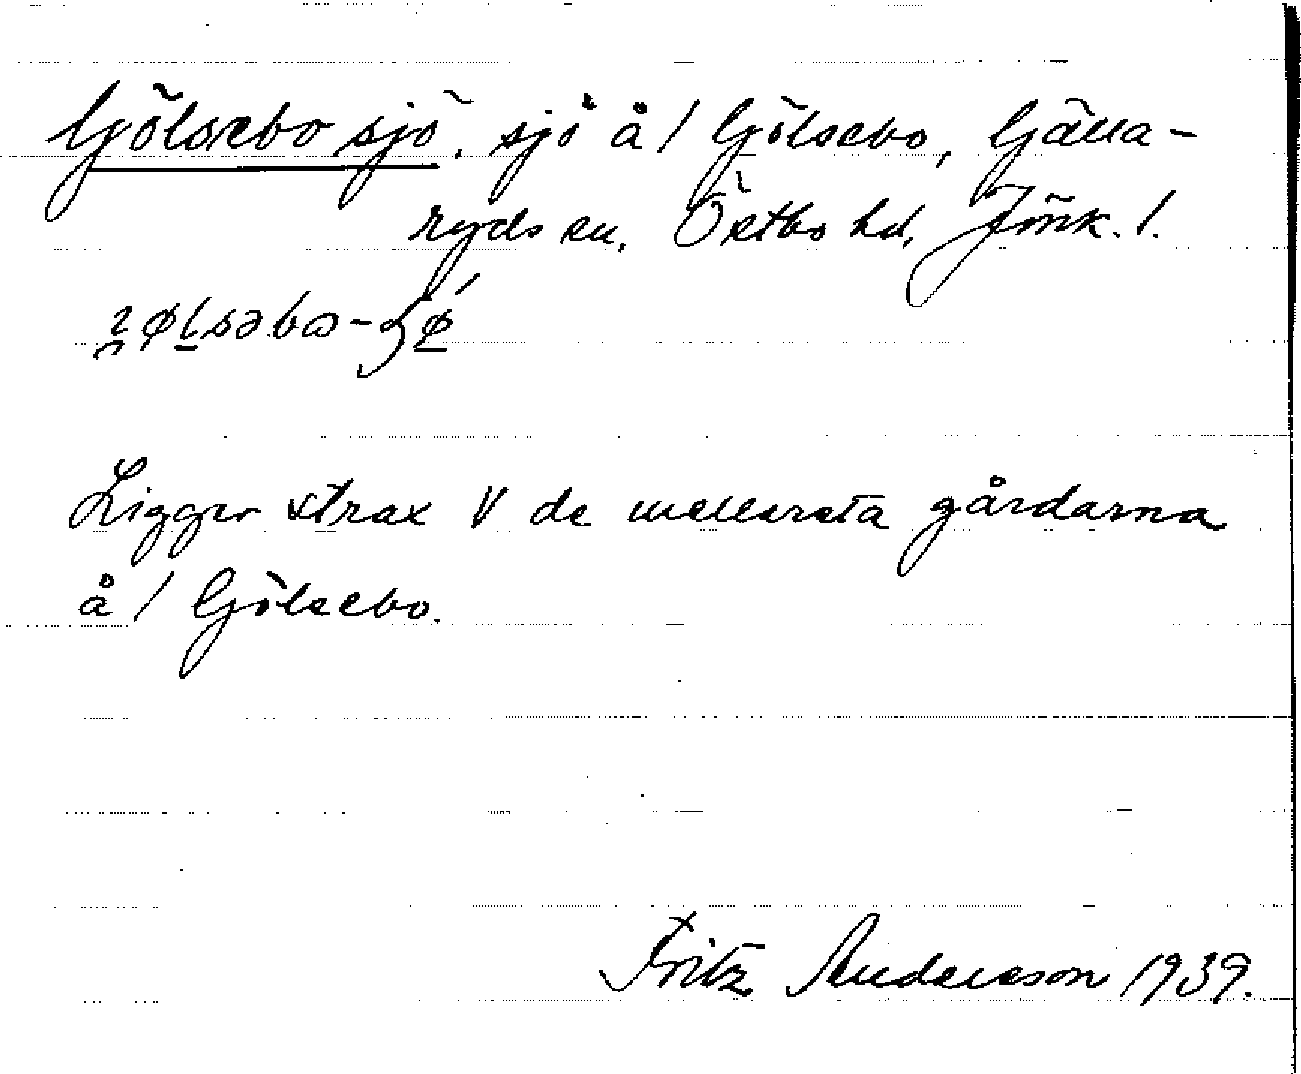 Gölsebo sjö, sjö å / Gölsebo, Gälla-
ryds sn, Östbo hd, Jönk. l.
Ligger strax V de mellersta gårdarna
å / Gölsebo.
Fritz Andersson 1939.